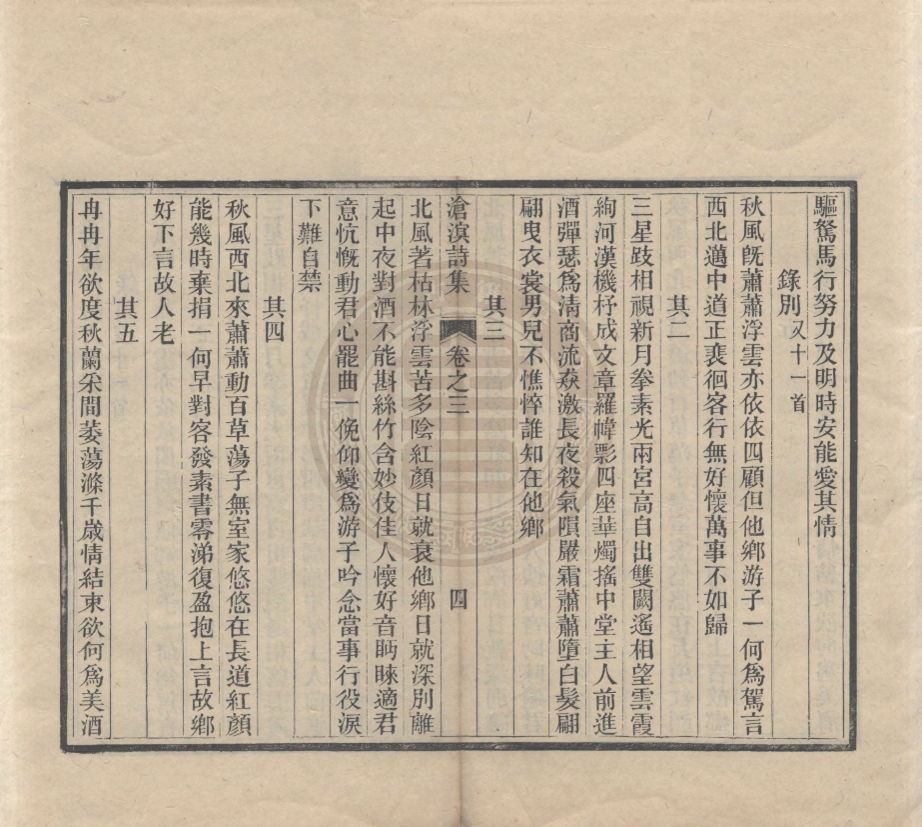 驅駑馬行努力及明時安能愛其情
錄別又十一首
秋風旣蕭蕭浮雲亦依依四顧但他鄉游子一何爲駕言
西北邁中道正裵徊客行無好懷萬事不如歸
其二
三星跂相視新月拳素光兩宮高自出雙闕遙相望雲霞
絢河漢機杼成文章羅幃影四座華燭搖中堂主人前進
酒彈瑟爲淸商流猋激長夜殺氣嘳嚴霜蕭蕭墮白髮翩
翩曳衣裳男兒不憔悴誰知在他鄉
其三
滄溟詩集 卷之三 四
北風著枯林浮雲苦多陰紅顏日就衰他鄉日就深別離
起中夜對酒不能斟絲竹含妙伎佳人懷好音眄睞適君
意忼慨動君心罷曲一俛仰變爲游子吟念當事行役淚
下難自禁
其四
秋風西北來蕭蕭動百草蕩子無室家悠悠在長道紅顏
能幾時棄捐一何早對客發素書零涕復盈抱上言故鄉
好下言故人老
其五
冉冉年欲度秋蘭采間萎蕩滌千歲情結束欲何爲美酒